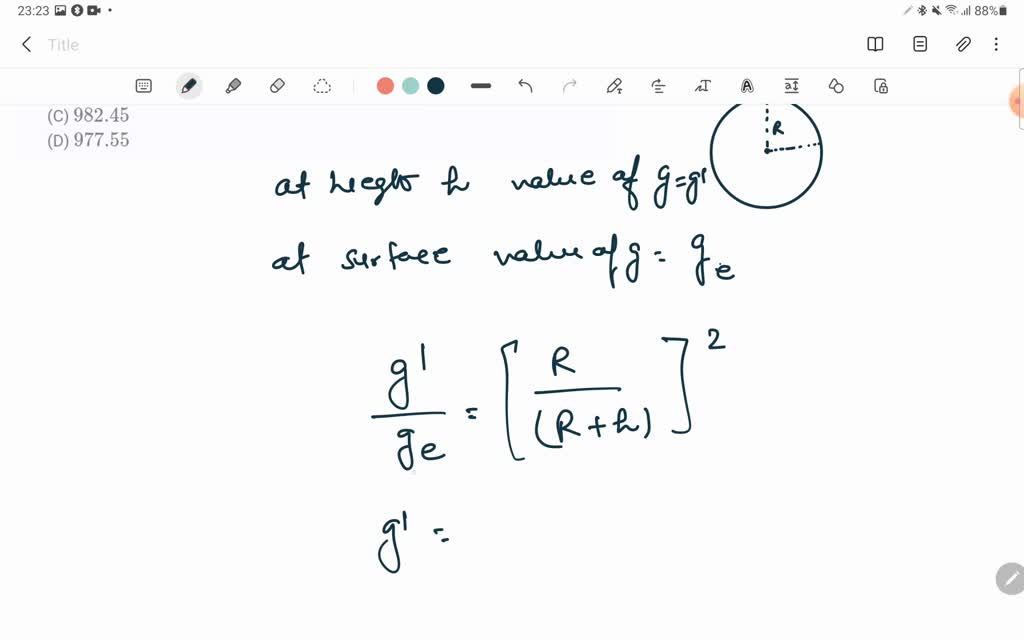 23:23 88%
Title
(C) 982.45
(D) 977.55
R
at heght h value of g=g'
at surface value of g = ge
g'/ge = [R/(R+h)]²
g' =